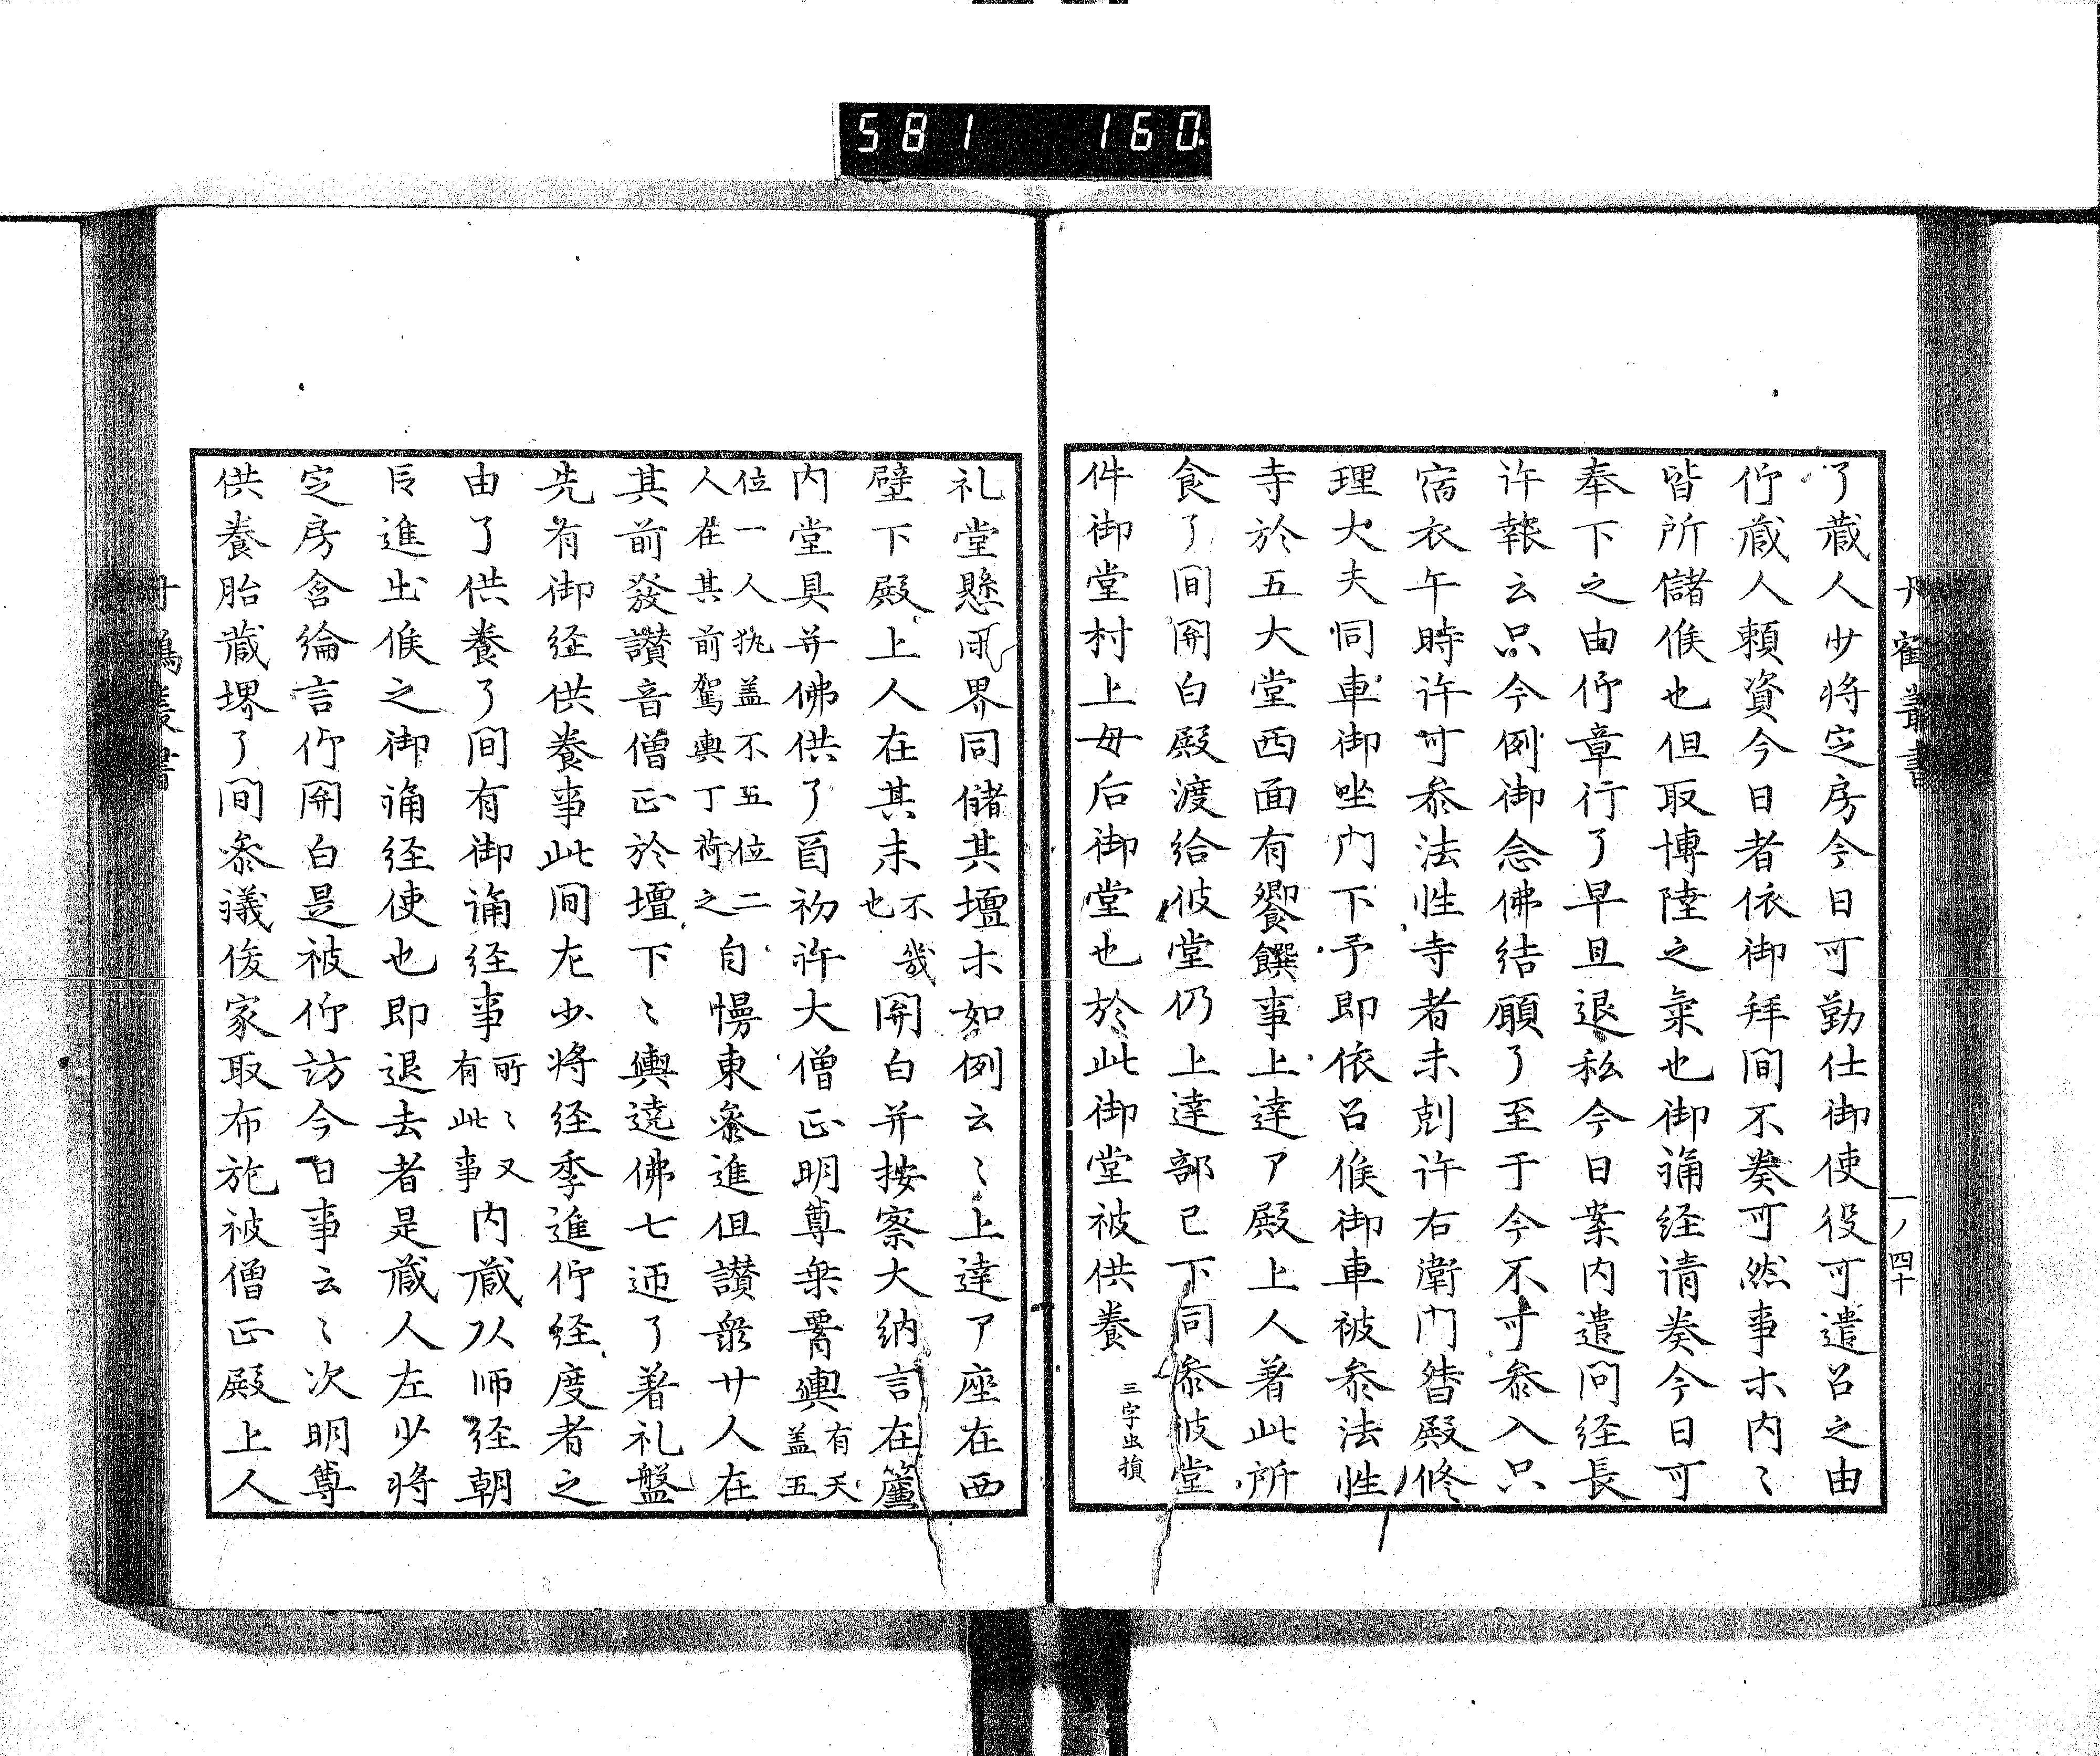 581 160.
丹鶴叢書
一ノ四十
了蔵人少将定房今日可勤仕御使役可遣召之由
仰蔵人頼資今日者依御拜間不奏可然事ホ内〻
皆所儲候也但取博陸之氣也御誦経请奏今日可
奉下之由仰章行了早旦退私今日案内遣问経長
许報云只今例御念佛结願了至于今不可参入只
宿衣午時许可参法性寺者未剋许右衛门督殿修
理大夫同車御坐门下予即依召候御車被参法性
寺於五大堂西面有饗饌事上達ア殿上人著此所
食了间関白殿渡给彼堂仍上達部已下同参彼堂
件御堂村上母后御堂也於此御堂被供養 三字虫損
礼堂懸両界同儲其壇ホ如例云〻上達ア座在西
壁下殿上人在其末不幾也関白并按察大納言在簾
内堂具并佛供了酉初許大僧正明尊乗腰輿有天盖五
位一人执盖不五位二人在其前駕輿丁荷之自幔東参進但讃衆廿人在
其前發讃音僧正於壇下〻輿遶佛七迊了著礼盤
先有御経供養事此间左少将経季進仰経度者之
由了供養了间有御誦経事所〻又有此事内蔵以师経朝
臣進出候之御誦経使也即退去者是蔵人左少将
定房含綸言仰関白是被仰訪今日事云〻次明尊
供養胎蔵堺了间参議俊家取布施被僧正殿上人